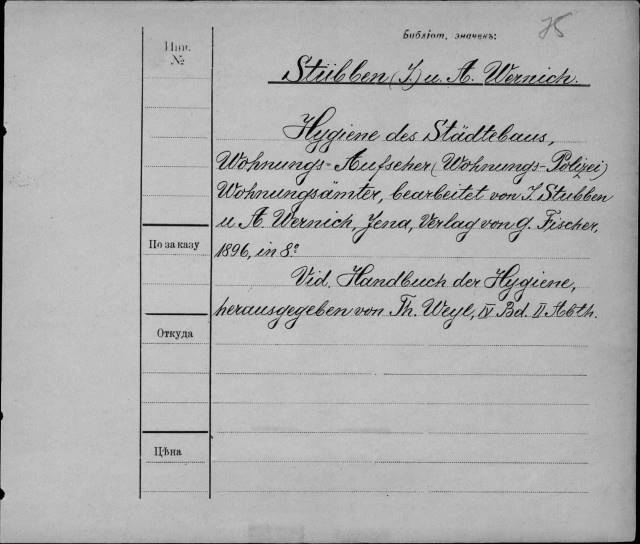 Библіот. значекъ: 75
Инв. №
Stübben (J.) u. A. Wernich.
Hygiene des Städtebaus,
Wohnungs-Aufseher (Wohnungs-Polizei)
Wohnungsämter, bearbeitet von J. Stubben
u. A. Wernich, Jena, Verlag von G. Fischer,
По заказу
1896, in 8º.
Vid. Handbuch der Hygiene,
herausgegeben von Th. Weyl, IV Bd. II Abth.
Откуда
Цѣна